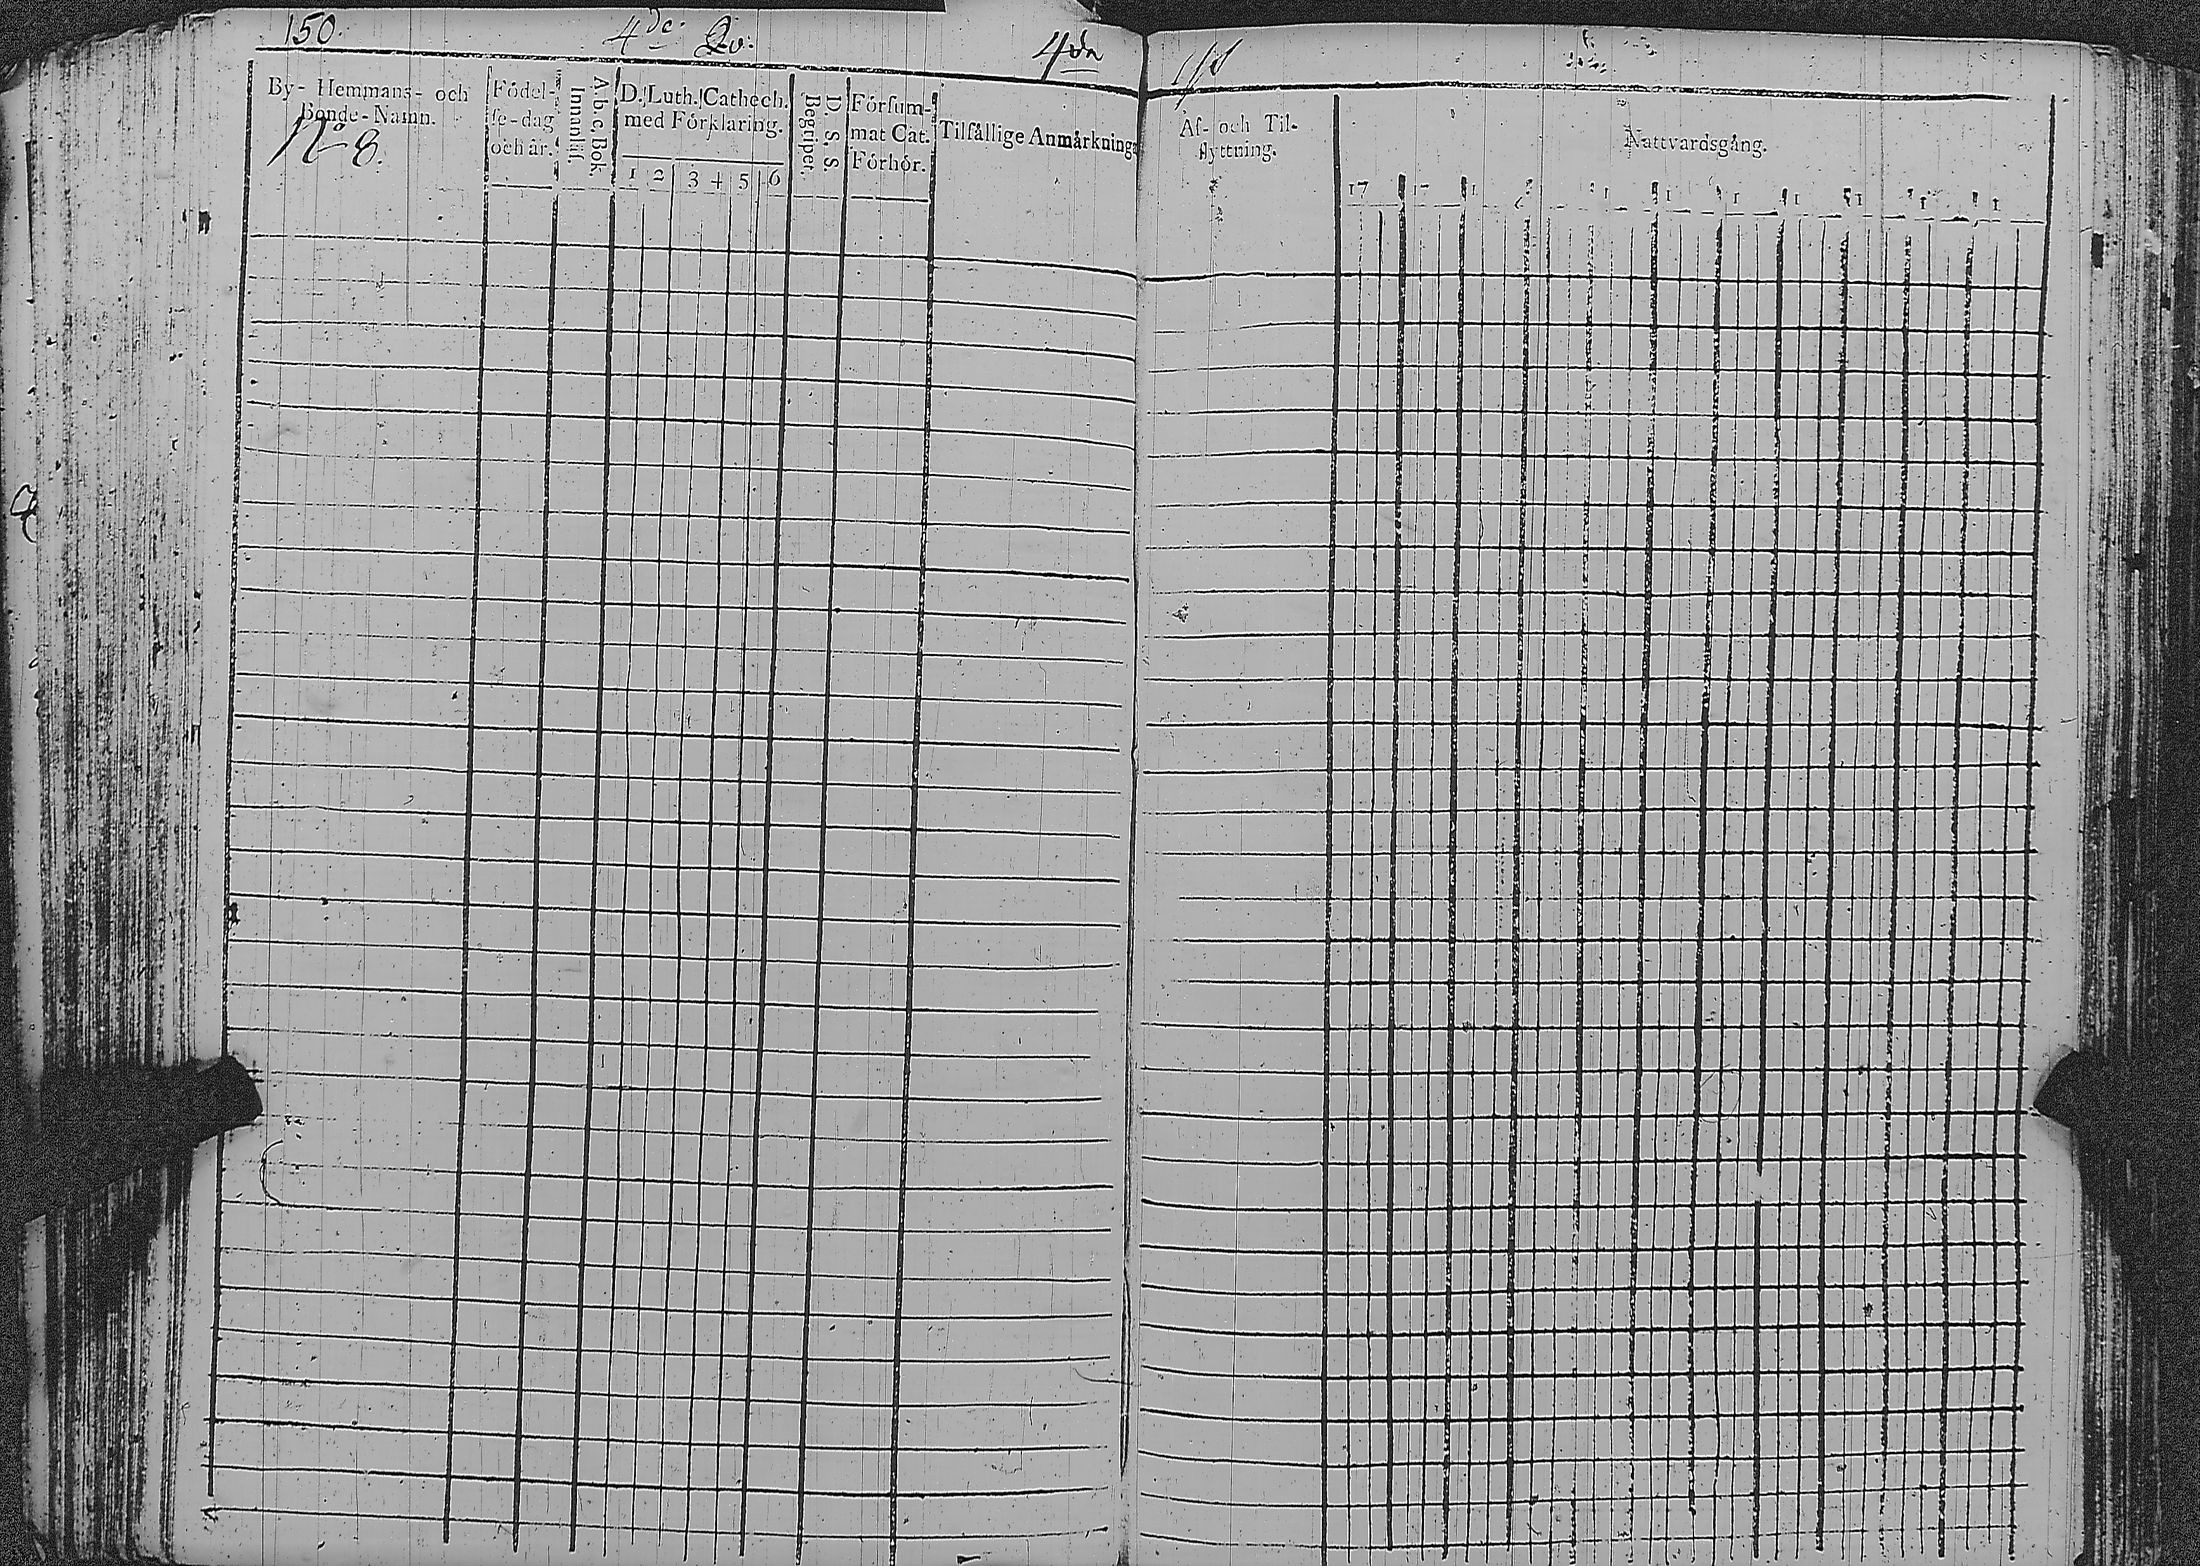 150.
4de Qv.
4de
By- Hemmans- och
Bonde-Namn.
No 8.
Födel-
se-dag
och år.
A b c Bok.
Innantil.
D. Luth. Cathech.
med Förklaring.
1 2 3 4 5 6
D. S. S.
Begriper.
Försum-
mat Cat.
Förhör.
Tilfällige Anmärkning
Af- och Til-
flyttning.
Nattvardsgång.
17 17 1 1 1 1 1 1 1 1